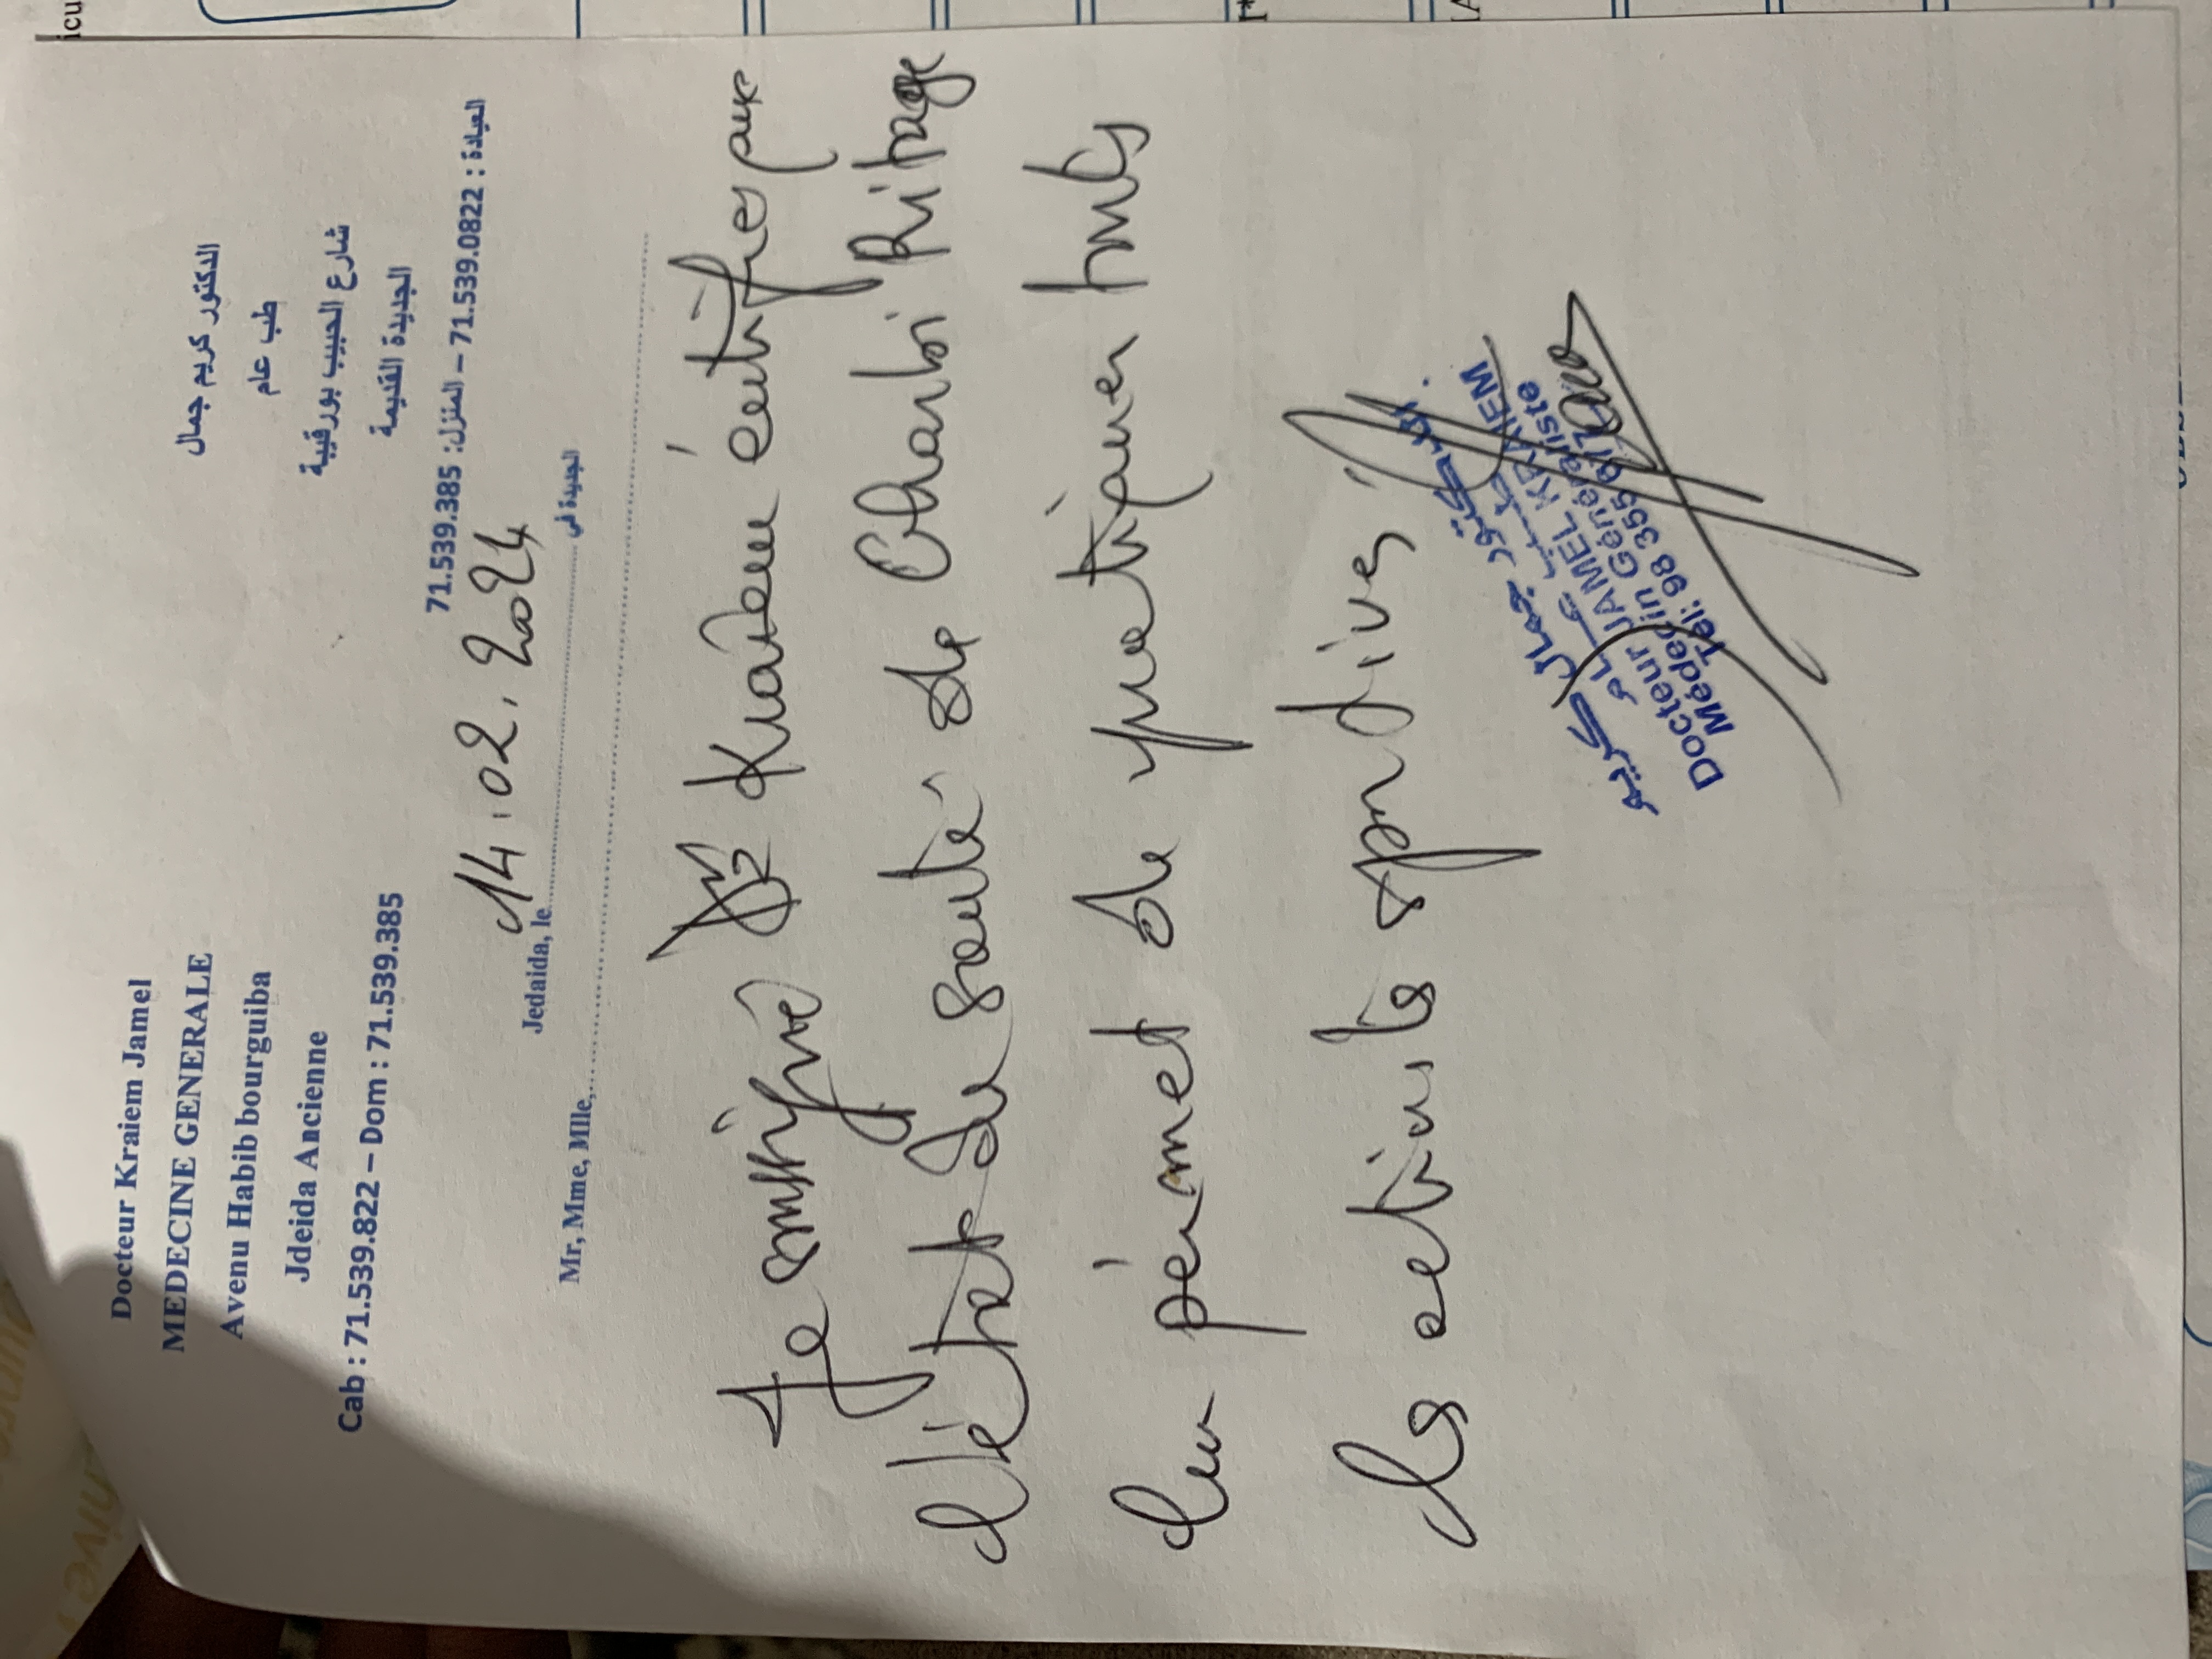 Docteur Kraiem Jamel
MEDECINE GENERALE
Avenu Habib bourguiba
Jdeida Ancienne
Cab : 71.539.822 – Dom : 71.539.385
الدكتور كريم جمال
طب عام
شارع الحبيب بورقيبة
الجديدة القديمة
العيادة : 71.539.0822 – المنزل: 71.539.385
14.02.2024
Jedaida, le الجديدة في
Mr, Mme, Mlle,
Je soussigné Dr Kraiem certifie que
l'état de santé de Charbi Rihage
lui permet de pratiquer toutes
les activités sportives
كريم جمال
Docteur JAMEL KRAIEM
Médecin Généraliste
Tel: 98 355